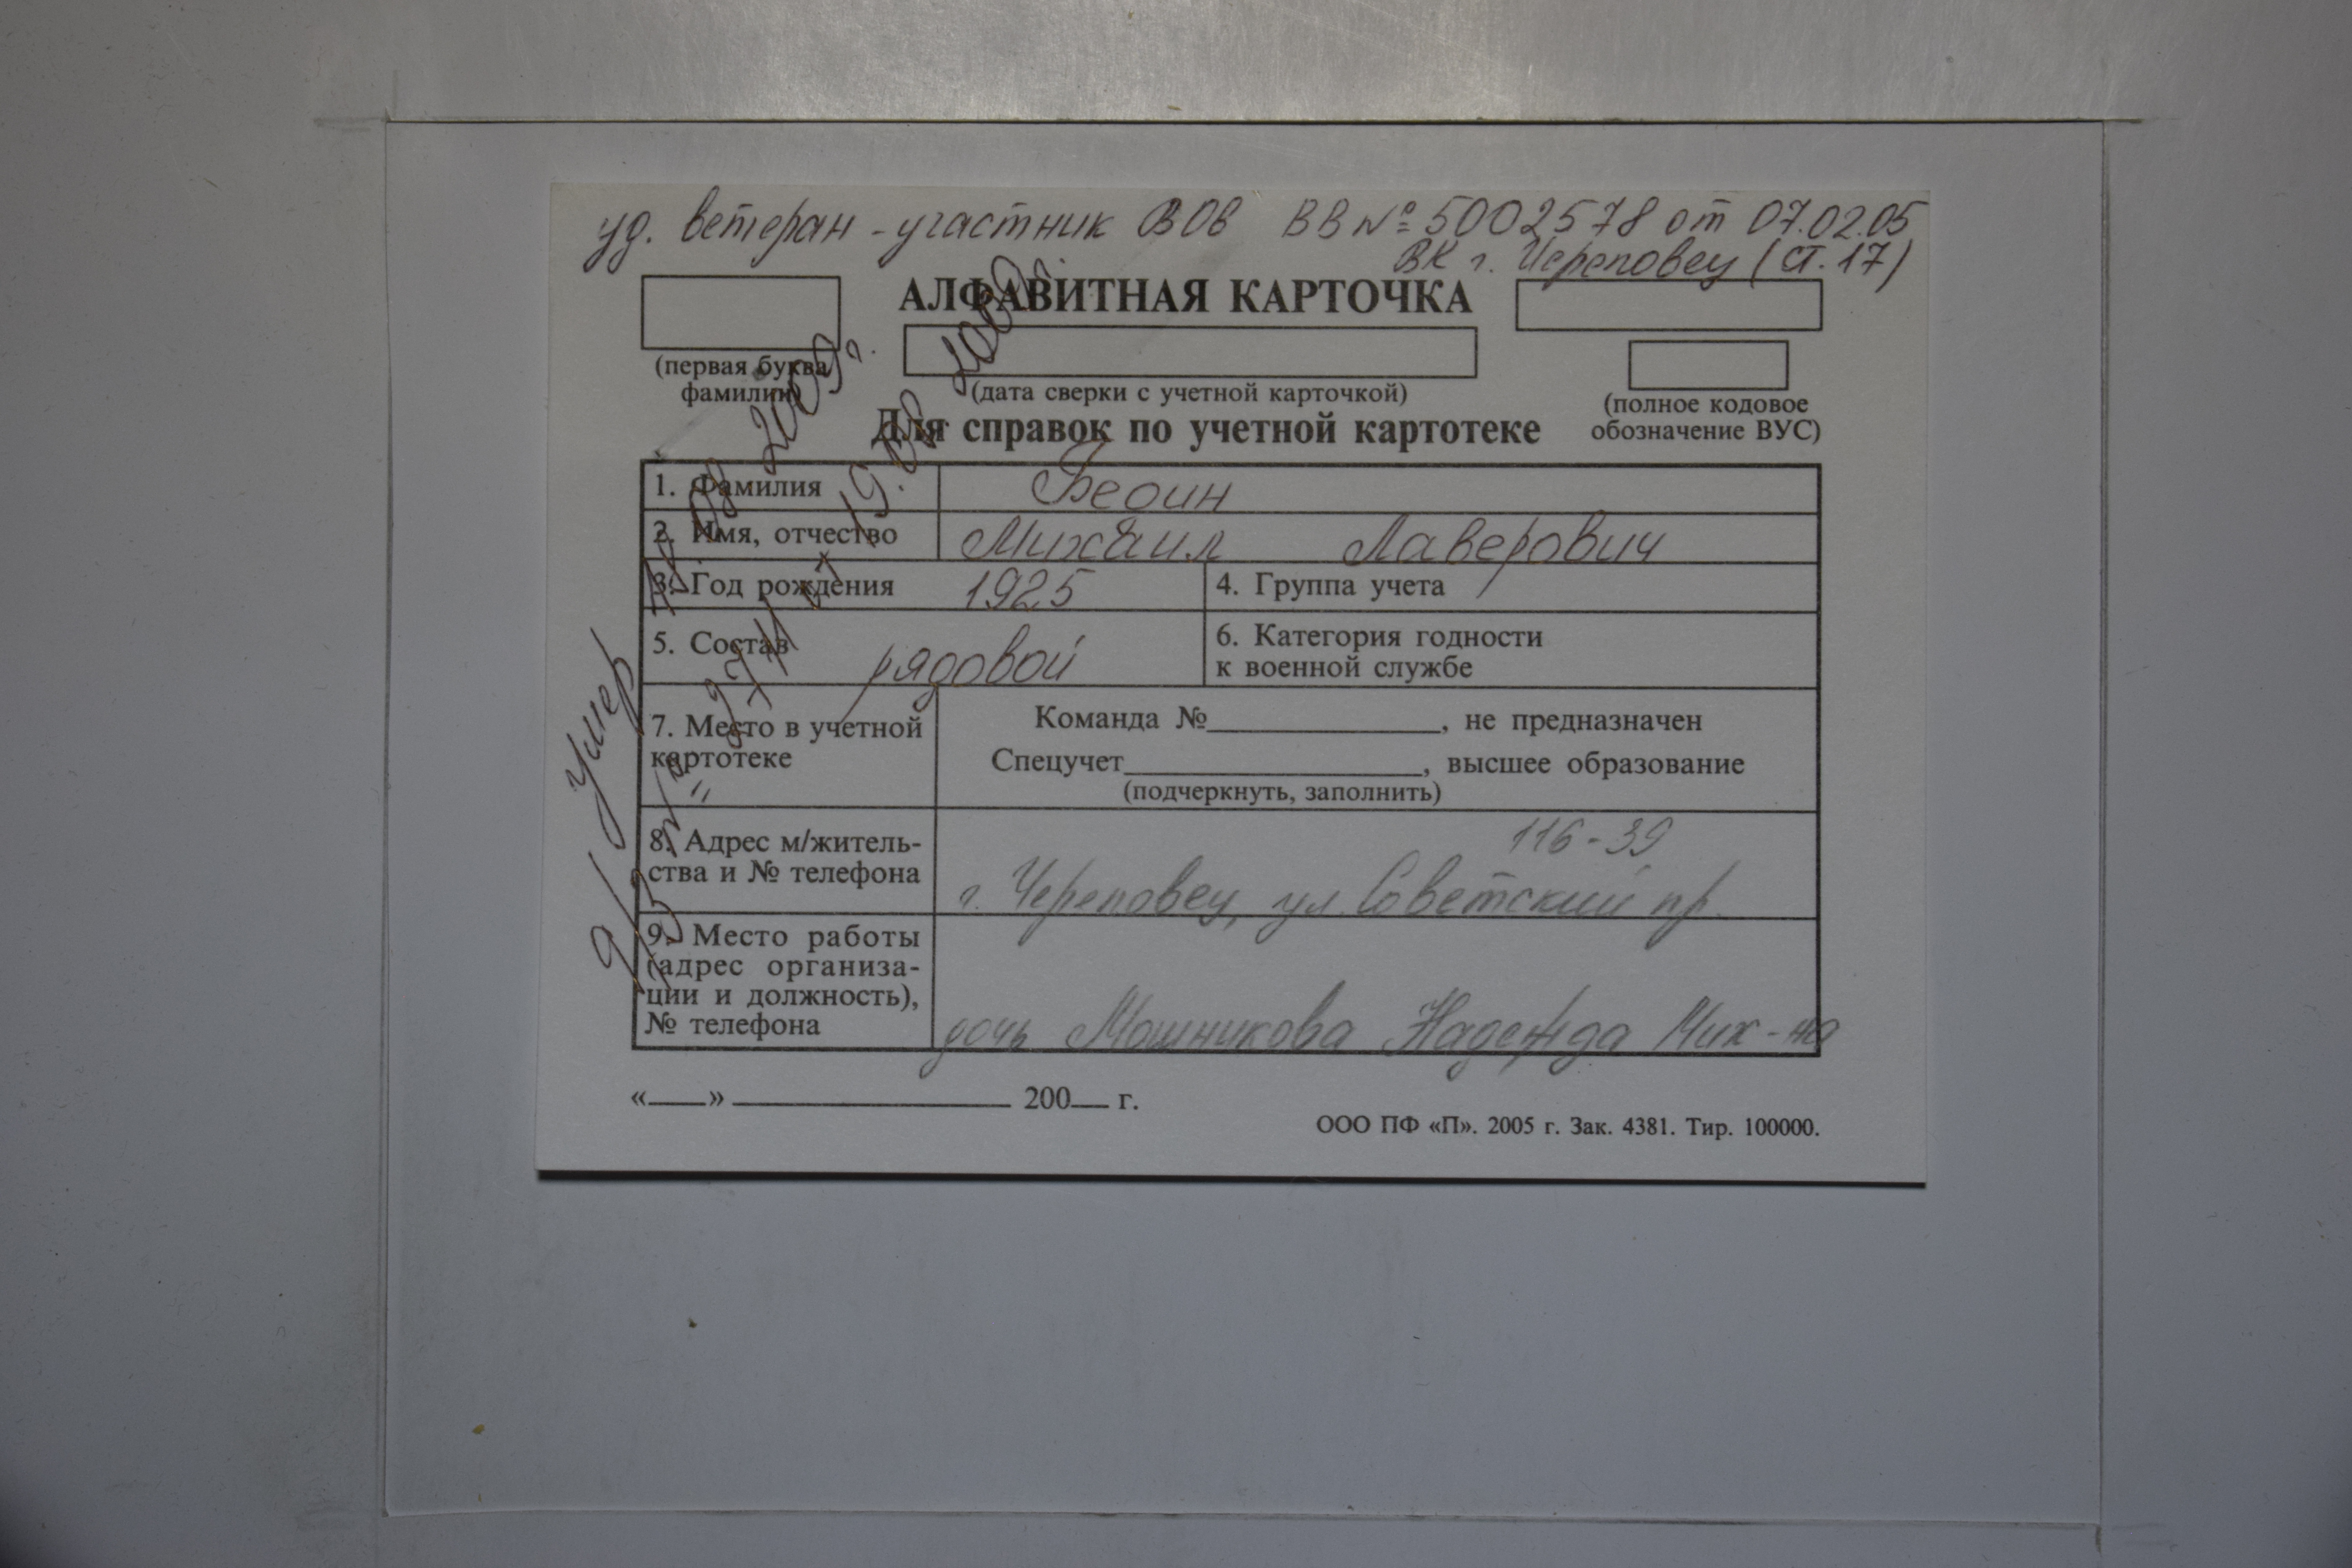 уд. ветеран - участник ВОв ВВ № 5002578 от 07.02.05
ВК г. Череповец (ст. 17)
АЛФАВИТНАЯ КАРТОЧКА
(первая буква фамилии)
(дата сверки с учетной карточкой)
(полное кодовое обозначение ВУС)
Для справок по учетной картотеке
1. Фамилия
2. Имя, отчество Михаил Лаверович
3. Год рождения 1925
4. Группа учета
5. Состав рядовой
6. Категория годности
к военной службе
7. Место в учетной
картотеке
Команда №, не предназначен
Спецучет, высшее образование
(подчеркнуть, заполнить)
8. Адрес м/житель-
ства и № телефона
116-39
г. Череповец, ул. Советский пр.
9. Место работы
(адрес организа-
ции и должность),
№ телефона
дочь Мошникова Надежда Мих-на
умер 2009г.
«» 200 г.
ООО ПФ «П». 2005 г. Зак. 4381. Тир. 100000.